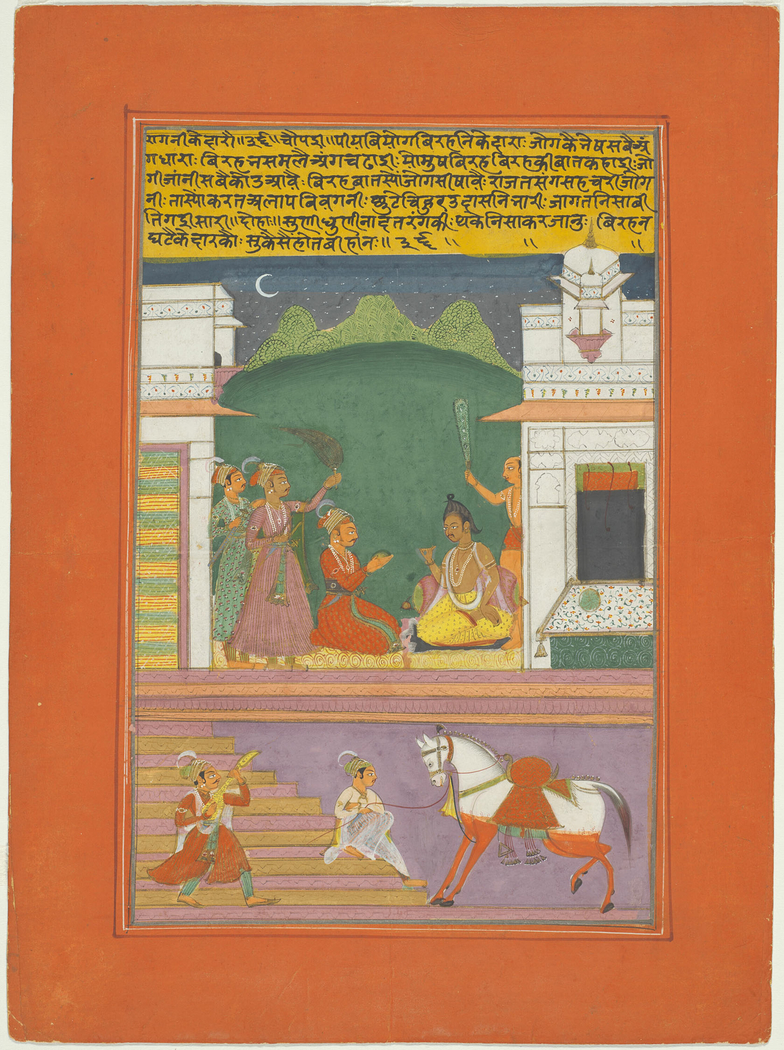 रागनी केदारौ॥३६॥ चौपइ॥ पीयबियोगबिरहनिकेदाराः जोगकैनेषसबैअं
गधाराः बिरहनसमलैअंगचढाइः सोमुषबिरहबिरहकीबातकहाइः जो
गीजांनीसबैकोउआवैः बिरहबातस्योंजोगसीषावैः राजतसंगसहचरीजोग
नीः तास्योकरतअलापबिबगनीः छूटेचिहुरउदासनिनारीः जागतनिसाबी
तिगइसारी॥दोहा॥ सुणीधुणीनादतरंगकीः थकेनिसाकरजानुः बिरहन
घटकेदारकौः सुकैसैहोतबीहानः॥ ३६ ॥ ॥ ॥